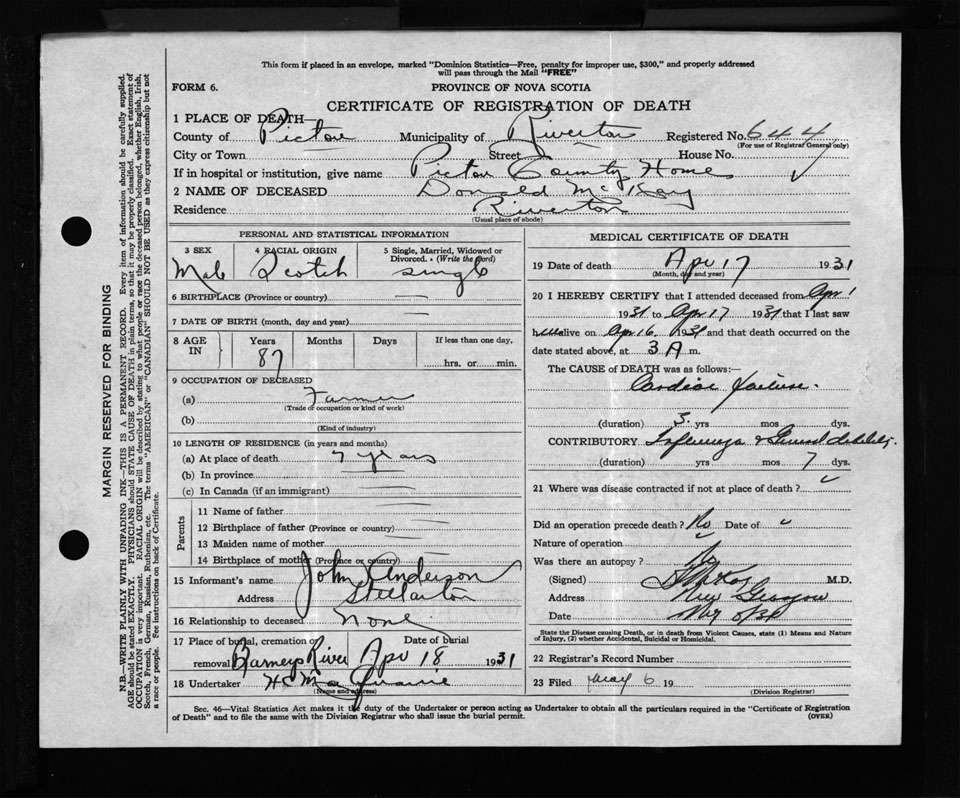 This form if placed in an envelope, marked "Dominion Statistics—Free, penalty for improper use, $300," and properly addressed
will pass through the Mail "FREE"
FORM 6.
PROVINCE OF NOVA SCOTIA
CERTIFICATE OF REGISTRATION OF DEATH
1 PLACE OF DEATH—
County of Pictou Municipality of Riverton Registered No. 644
(For use of Registrar General only)
City or Town Street House No.
If in hospital or institution, give name Pictou County Home
2 NAME OF DECEASED Donald McKay
Residence Riverton
(Usual place of abode)
PERSONAL AND STATISTICAL INFORMATION
3 SEX 4 RACIAL ORIGIN 5 Single, Married, Widowed or
Divorced. (Write the word)
Male Scotch single
6 BIRTHPLACE (Province or country)
7 DATE OF BIRTH (month, day and year)
8 AGE IN Years Months Days If less than one day,
87 hrs. or min.
9 OCCUPATION OF DECEASED
(a) Farmer
(Trade of occupation or kind of work)
(b)
(Kind of industry)
10 LENGTH OF RESIDENCE (in years and months)
(a) At place of death 7 years
(b) In province
(c) In Canada (if an immigrant)
Parents
11 Name of father
12 Birthplace of father (Province or country)
13 Maiden name of mother
14 Birthplace of mother (Province or country)
15 Informant's name John Anderson
Address Stellarton
16 Relationship to deceased none
17 Place of burial, cremation or Date of burial
removal Barneys River Apr 18 1931
18 Undertaker
(Name and address)
MEDICAL CERTIFICATE OF DEATH
19 Date of death Apr 17 1931
(Month, day and year)
20 I HEREBY CERTIFY that I attended deceased from Apr 1
1931 to Apr 17 1931 that I last saw
h alive on Apr 16 1931 and that death occurred on the
date stated above, at 3 A m.
The CAUSE of DEATH was as follows:—
Cardiac failure.
(duration) 3 yrs mos dys.
CONTRIBUTORY Influenza & General debility.
(duration) yrs mos 7 dys.
21 Where was disease contracted if not at place of death?
Did an operation precede death? No Date of
Nature of operation
Was there an autopsy? No
(Signed) M.D.
Address New Glasgow
Date
State the Disease causing Death, or in death from Violent Causes, state (1) Means and Nature
of Injury, (2) whether Accidental, Suicidal or Homicidal.
22 Registrar's Record Number
23 Filed May 6 19
(Division Registrar)
Sec. 46—Vital Statistics Act makes it the duty of the Undertaker or person acting as Undertaker to obtain all the particulars required in the "Certificate of Registration
of Death" and to file the same with the Division Registrar who shall issue the burial permit. (OVER)
MARGIN RESERVED FOR BINDING
N.B.—WRITE PLAINLY WITH UNFADING INK—THIS IS A PERMANENT RECORD. Every item of information should be carefully supplied.
AGE should be stated EXACTLY. PHYSICIANS should STATE CAUSE OF DEATH in plain terms, so that it may be properly classified. Exact statement of
OCCUPATION is very important. RACIAL ORIGIN will be described by stating to what people or race the deceased person belonged, whether English, Irish,
Scotch, French, German, Russian, Ruthenian, etc. The terms "AMERICAN" or "CANADIAN" SHOULD NOT BE USED as they express citizenship but not
a race or people. See instructions on back of Certificate.